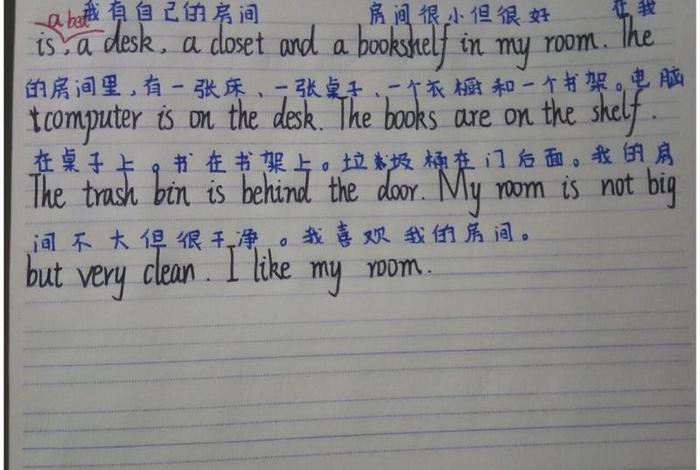 a bed
我有自己的房间 房间很小但很好 在我
is, a desk, a closet and a bookshelf in my room. The
的房间里,有一张床、一张桌子、一个衣橱和一个书架。电脑
computer is on the desk. The books are on the shelf.
在桌子上。书在书架上。垃圾桶在门后面。我的房
The trash bin is behind the door. My room is not big
间不大但很干净。我喜欢我的房间。
but very clean. I like my room.